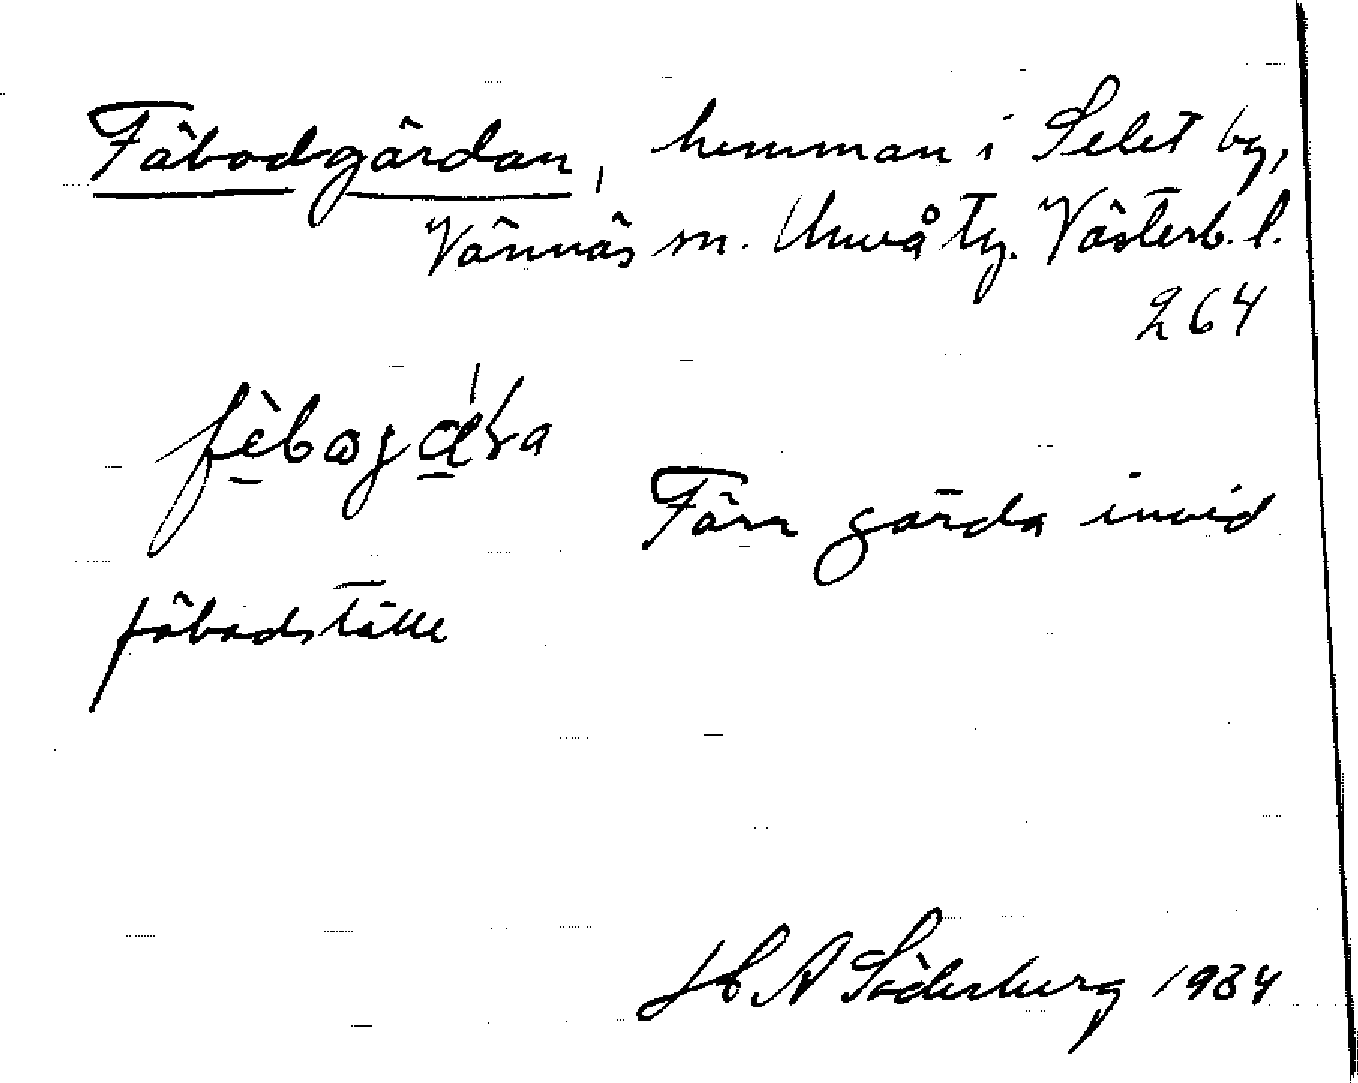 Fäbodgärdan, hemman i Selet by,
Vännäs sn. Umeå tg. Västerb. l.
264
Förr gärda invid
fäbodställe
H A Söderberg 1934